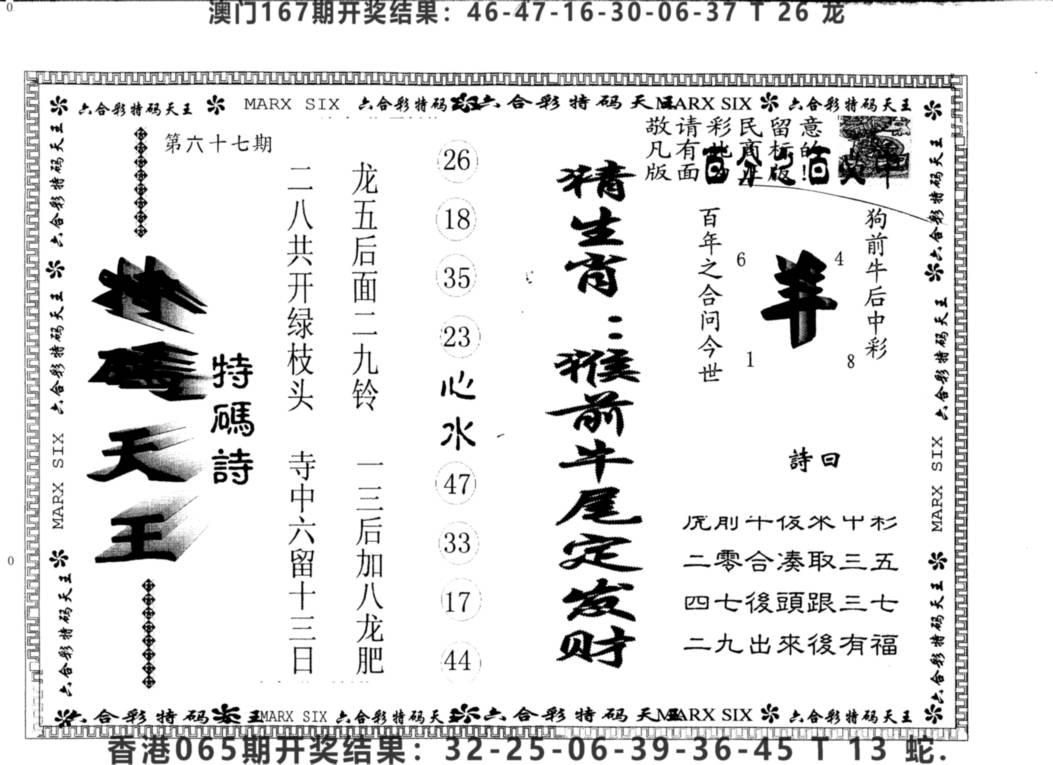 澳门167期开奖结果：46-47-16-30-06-37 T 26 龙
六合彩特码天王 MARX SIX 六合彩特码 六合彩特码天王 MARX SIX 六合彩特码天王
六合彩特码天王
六合彩特码天王
MARX SIX
六合彩特码天王
第六十七期
特碼天王
特碼詩
二八共开绿枝头 寺中六留十三日
龙五后面二九铃 一三后加八龙肥
26
18
35
23
心水
47
33
17
44
猜生肖：猴前牛尾定发财
敬请彩民留意
凡有 商标的
版面 版！
百年之合问今世
6 4
羊
1 8
狗前牛后中彩
詩曰
虎前牛後來中彩
二零合凑取三五
四七後頭跟三七
二九出來後有福
六合彩特码天王
六合彩特码天王
MARX SIX
六合彩特码天王
六合彩特码 王 MARX SIX 六合彩特码天王 六合彩特码天 MARX SIX 六合彩特码天王
香港065期开奖结果：32-25-06-39-36-45 T 13 蛇.
0
0